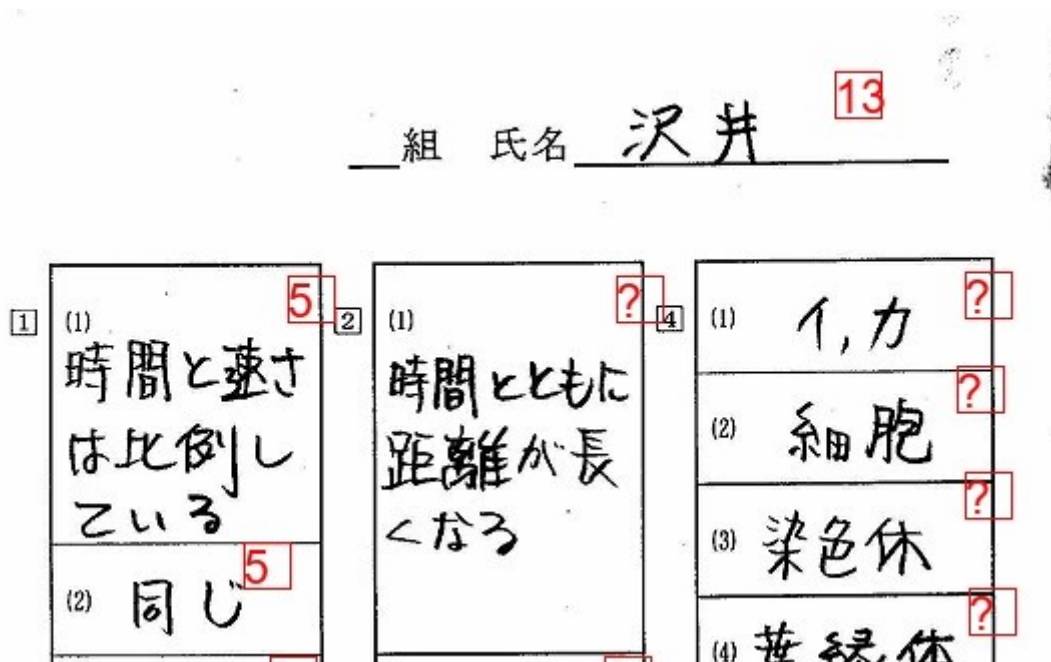 13
組 氏名 沢井
1 (1) 5
時間と速さ
は比例し
ている
(2) 同じ 5
2 (1) ?
時間とともに
距離が長
くなる
4 (1) イ,カ ?
(2) 細胞 ?
(3) 染色体 ?
(4) 葉緑体 ?